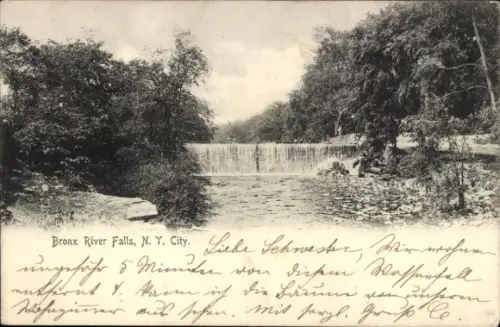 Bronx River Falls, N.Y. City. Liebe Schwester, Wir wohnen
ungefähr 5 Minuten von diesem Wasserfall
entfernt u. Mann ich die Bäume von unserem
aus sehen. Mit herzl. Gruß